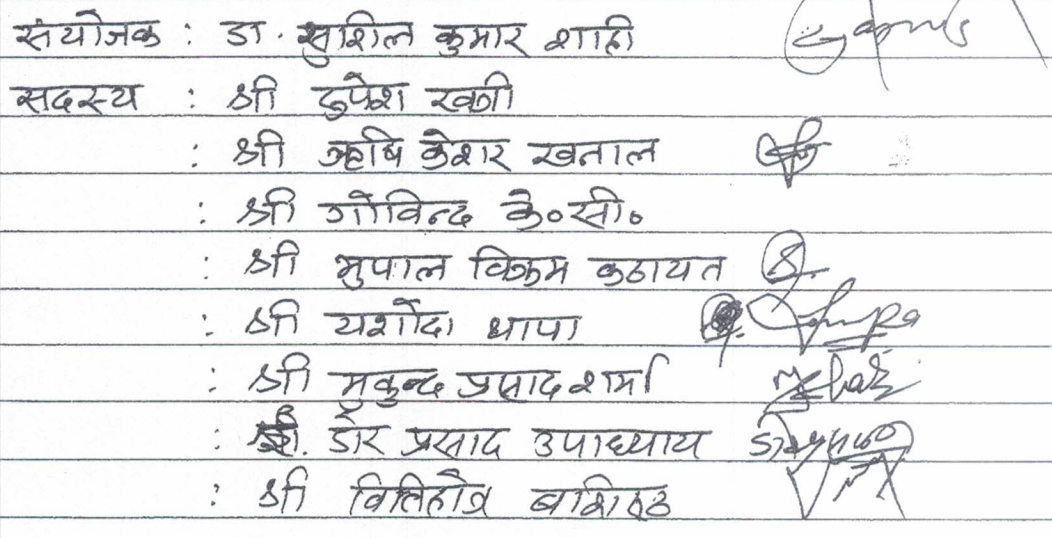 संयोजक : डा. सुशिल कुमार शाही
सदस्य : श्री दुपेश खत्री
: श्री ऋषि केशर खनाल
: श्री गोविन्द के॰सी॰
: श्री भुपाल विक्रम कठायत
: श्री यशोदा थापा
: श्री मुकुन्द प्रसाद शर्मा
: डोर प्रसाद उपाध्याय
: श्री बाशिष्ठ